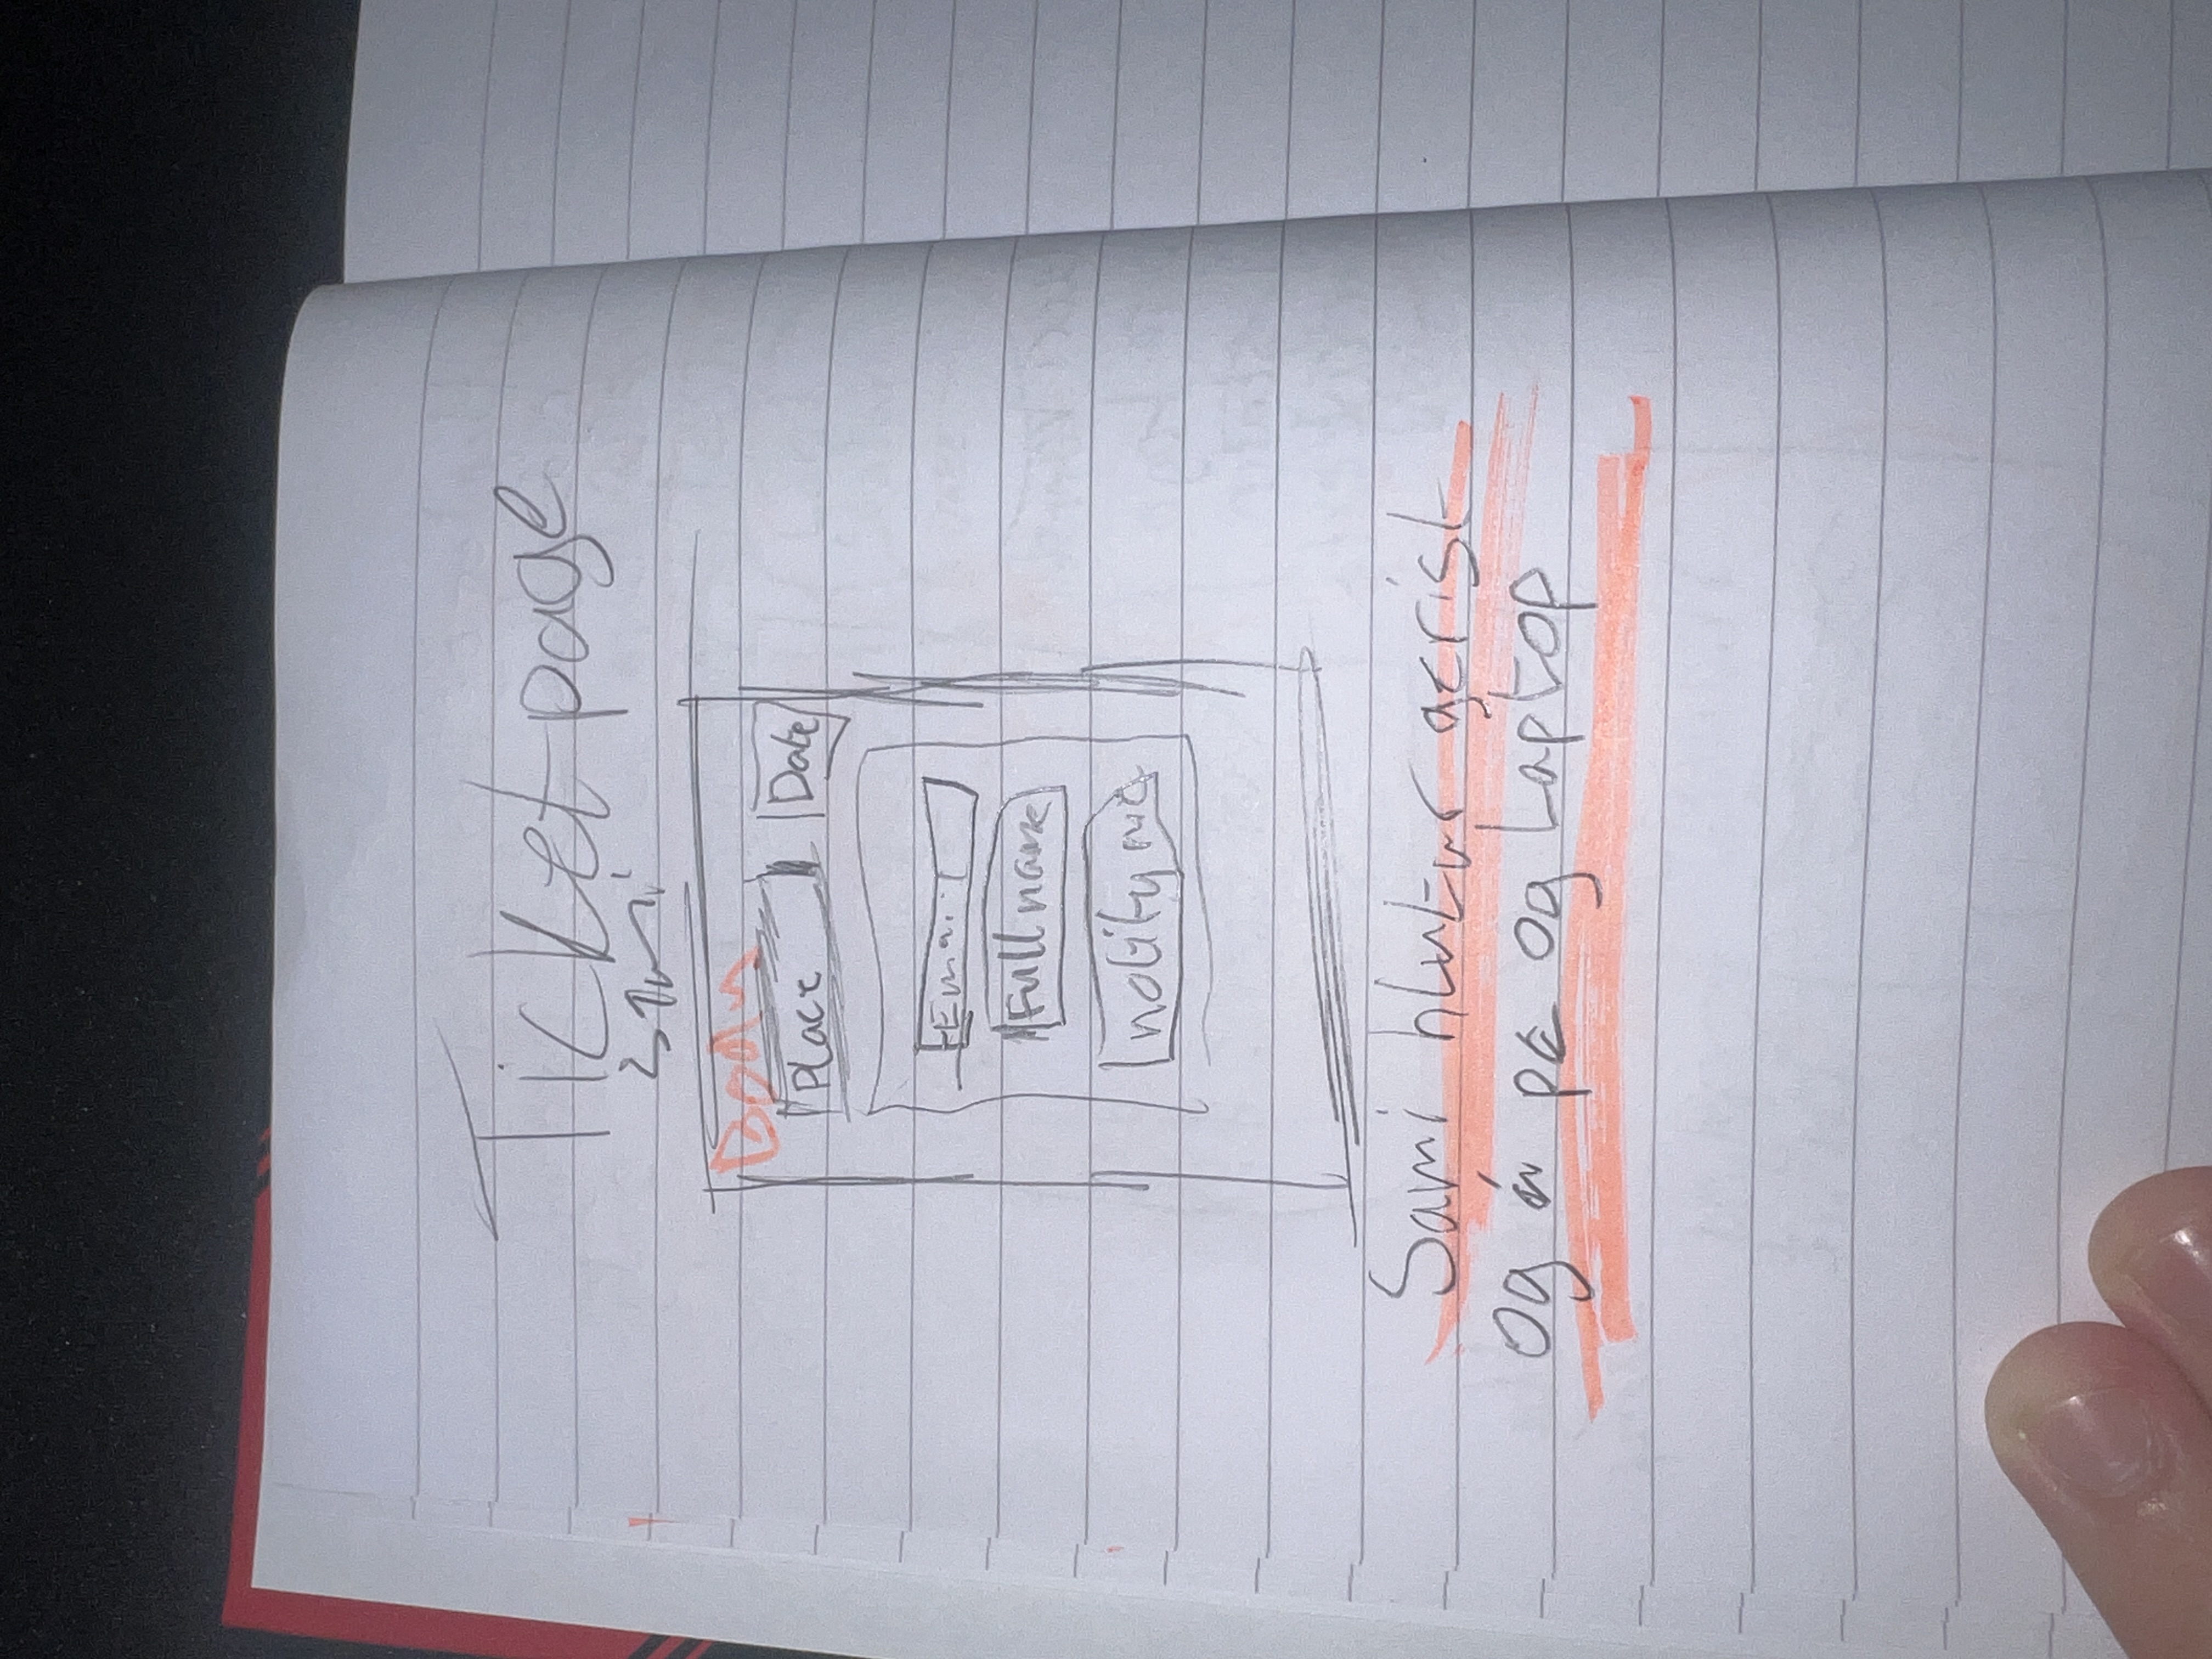 Ticket page
Sími
Body
Place
Date
Email
Full name
notify me
Sami hlutur gerist
og á pc og Laptop